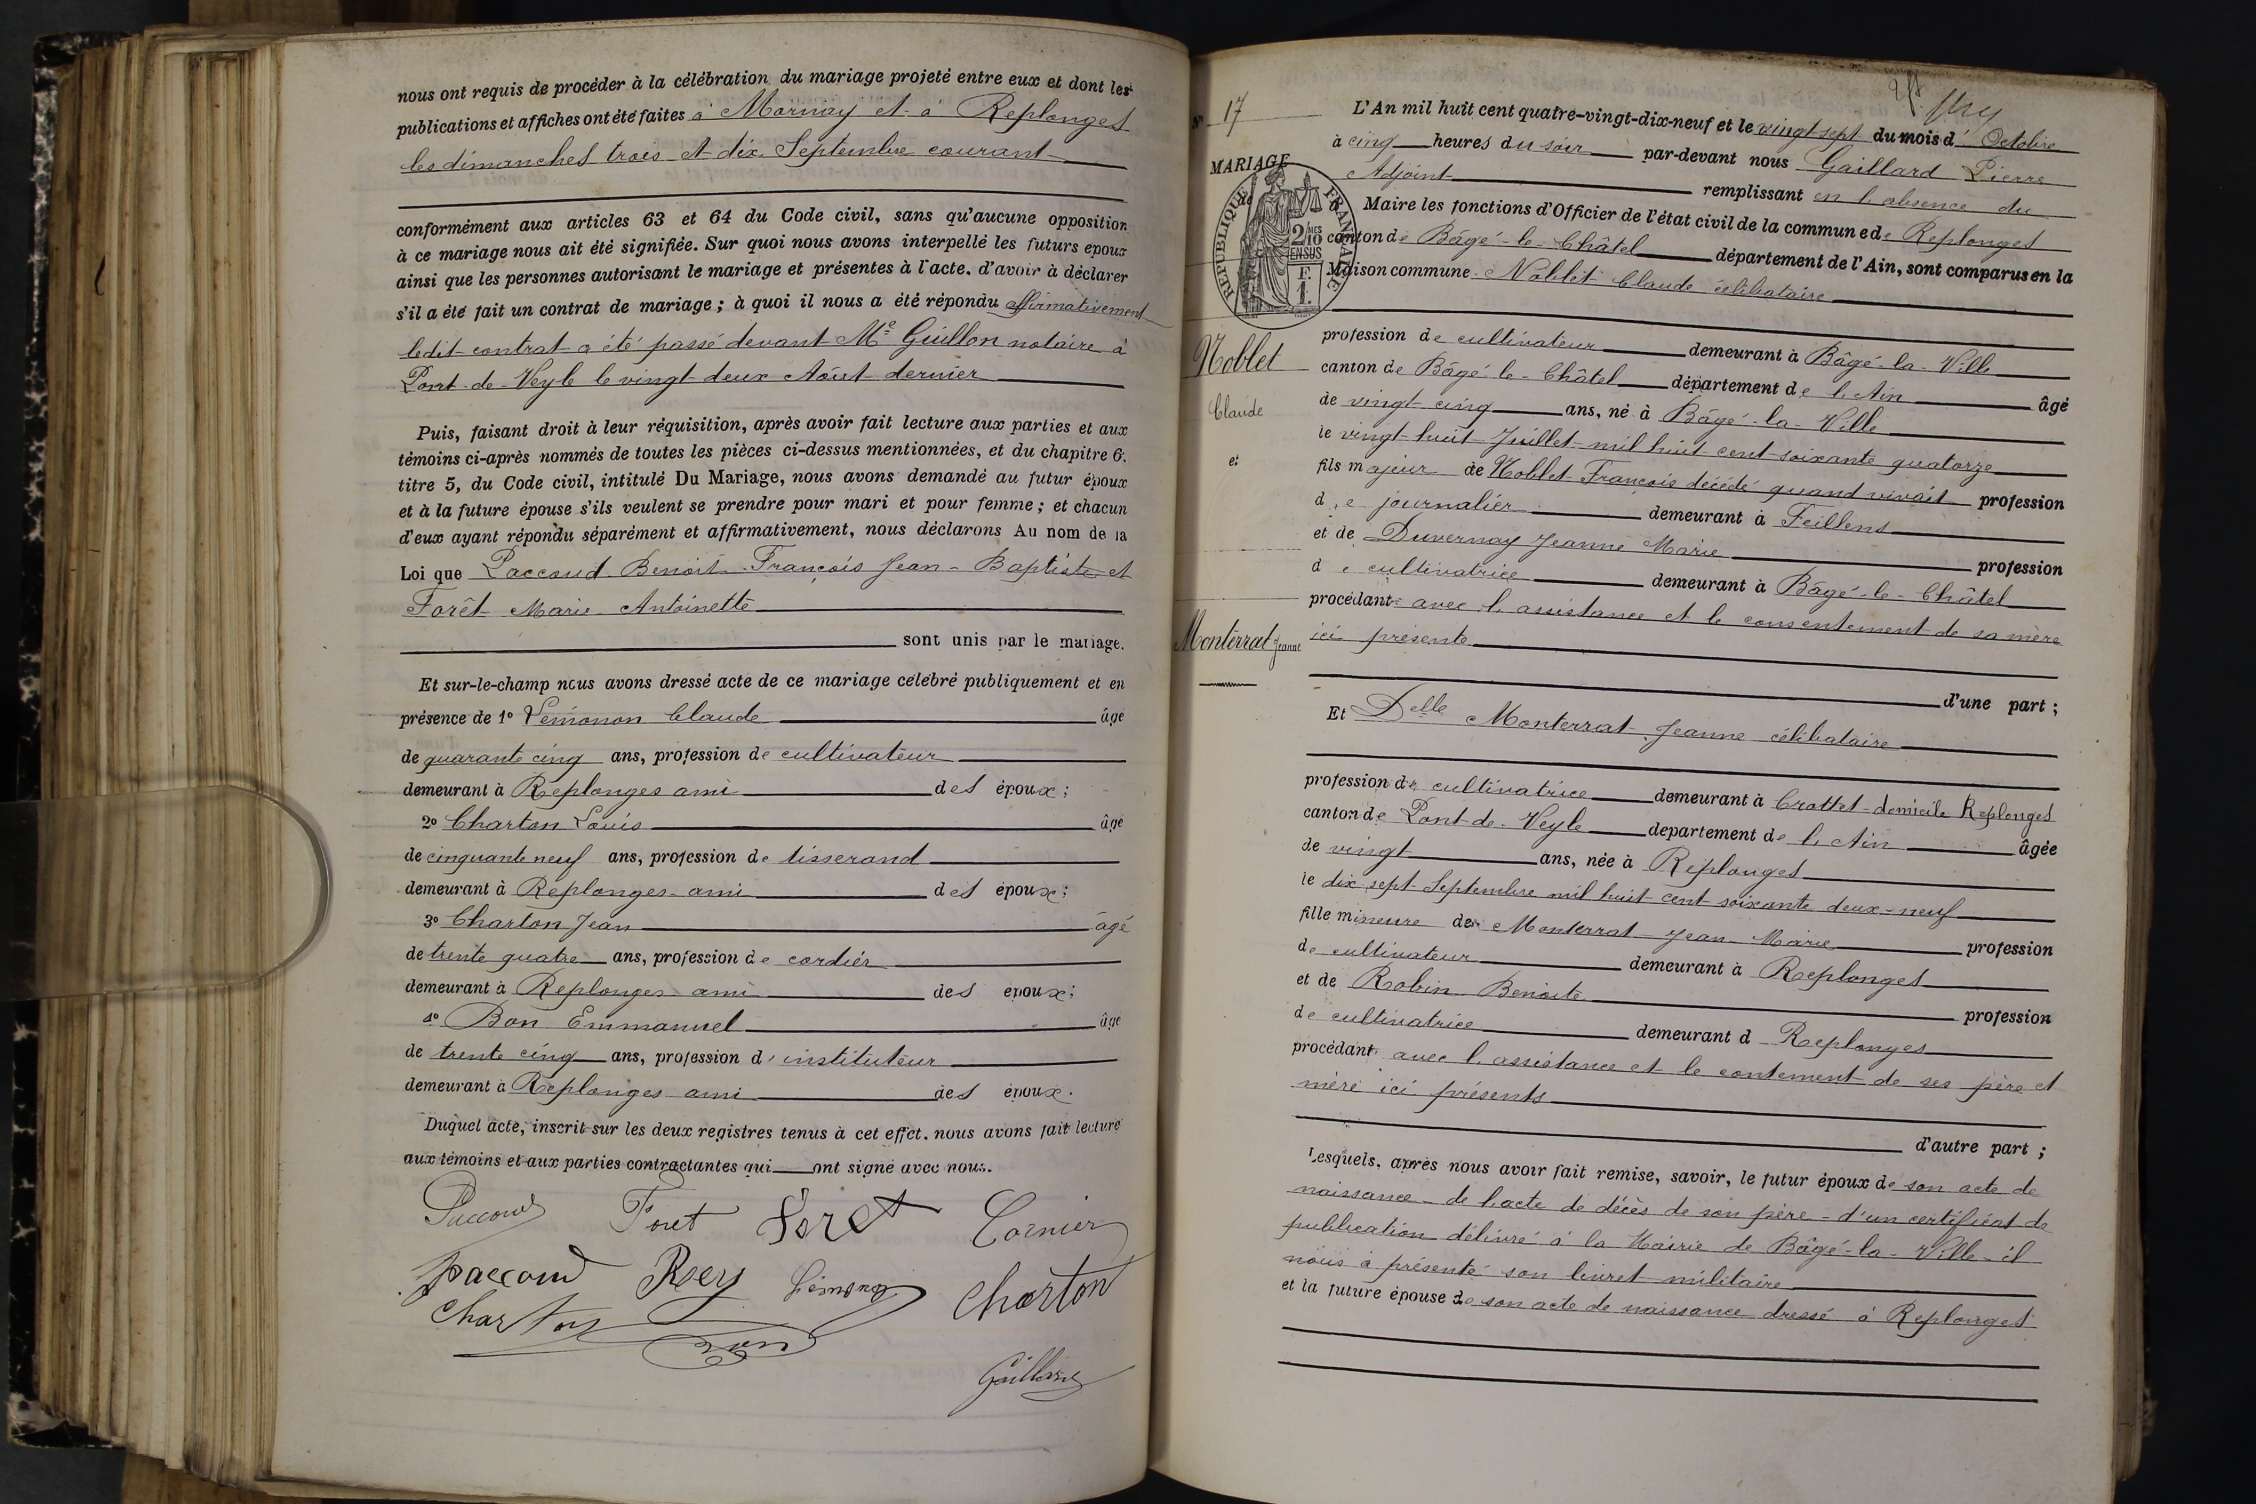 nous ont requis de procéder à la célébration du mariage projeté entre eux et dont les
publications et affiches ont été faites à Mornay et à Replonges
les dimanches trois et dix Septembre courant
conformément aux articles 63 et 64 du Code civil, sans qu'aucune opposition
à ce mariage nous ait été signifiée. Sur quoi nous avons interpellé les futurs époux
ainsi que les personnes autorisant le mariage et présentes à l'acte, d'avoir à déclarer
s'il a été fait un contrat de mariage ; à quoi il nous a été répondu affirmativement
ledit contrat a été passé devant Me Guillon notaire à
Pont-de-Veyle le vingt deux Août dernier
Puis, faisant droit à leur réquisition, après avoir fait lecture aux parties et aux
témoins ci-après nommés de toutes les pièces ci-dessus mentionnées, et du chapitre 6,
titre 5, du Code civil, intitulé Du Mariage, nous avons demandé au futur époux
et à la future épouse s'ils veulent se prendre pour mari et pour femme ; et chacun
d'eux ayant répondu séparément et affirmativement, nous déclarons Au nom de la
Loi que Paccoud Benoit François Jean-Baptiste et
Forêt Marie Antoinette
sont unis par le mariage.
Et sur-le-champ nous avons dressé acte de ce mariage célébré publiquement et en
présence de 1º Pémonon Claude âgé
de quarante cinq ans, profession de cultivateur
demeurant à Replonges ami des époux ;
2º Charton Louis âgé
de cinquante neuf ans, profession de tisserand
demeurant à Replonges ami des époux ;
3º Charton Jean âgé
de trente quatre ans, profession de cordier
demeurant à Replonges ami des époux ;
4º Bon Emmanuel âgé
de trente cinq ans, profession d'instituteur
demeurant à Replonges ami des époux.
Duquel acte, inscrit sur les deux registres tenus à cet effet, nous avons fait lecture
aux témoins et aux parties contractantes qui ont signé avec nous.
Paccoud Foret Foret Cornier
Paccoud Rey Pémonon Charton
Charton Bon
Gaillard
Nº 17
MARIAGE
de
REPUBLIQUE FRANÇAISE
2/10 EN SUS
1 F.
Noblet
Claude
et
Monterrat Jeanne
L'An mil huit cent quatre-vingt-dix-neuf et le vingt sept du mois d' Octobre
à cinq heures du soir par-devant nous Gaillard Pierre
Adjoint remplissant en l'absence du
Maire les fonctions d'Officier de l'état civil de la commune de Replonges
canton de Bâgé-le-Châtel département de l'Ain, sont comparus en la
Maison commune Noblet Claude célibataire
profession de cultivateur demeurant à Bâgé-la-Ville
canton de Bâgé-le-Châtel département de l'Ain âgé
de vingt cinq ans, né à Bâgé-la-Ville
le vingt-huit Juillet mil huit cent soixante quatorze
fils majeur de Noblet François décédé quand vivait profession
de journalier demeurant à Feillens
et de Duvernay Jeanne Marie profession
de cultivatrice demeurant à Bâgé-le-Châtel
procédant avec l'assistance et le consentement de sa mère
ici présente
d'une part ;
Et Delle Monterrat Jeanne célibataire
profession de cultivatrice demeurant à Crottet-domicile Replonges
canton de Pont-de-Veyle département de l'Ain âgée
de vingt ans, née à Replonges
le dix sept Septembre mil huit cent soixante deux-neuf
fille mineure de Monterrat Jean-Marie profession
de cultivateur demeurant à Replonges
et de Robin Benoite profession
de cultivatrice demeurant à Replonges
procédant avec l'assistance et le contement de ses père et
mère ici présents
d'autre part ;
Lesquels, après nous avoir fait remise, savoir, le futur époux de son acte de
naissance - de l'acte de décès de son père - d'un certificat de
publication délivré à la Mairie de Bâgé-la-Ville - il
nous a présenté son livret militaire
et la future épouse de son acte de naissance dressé à Replonges